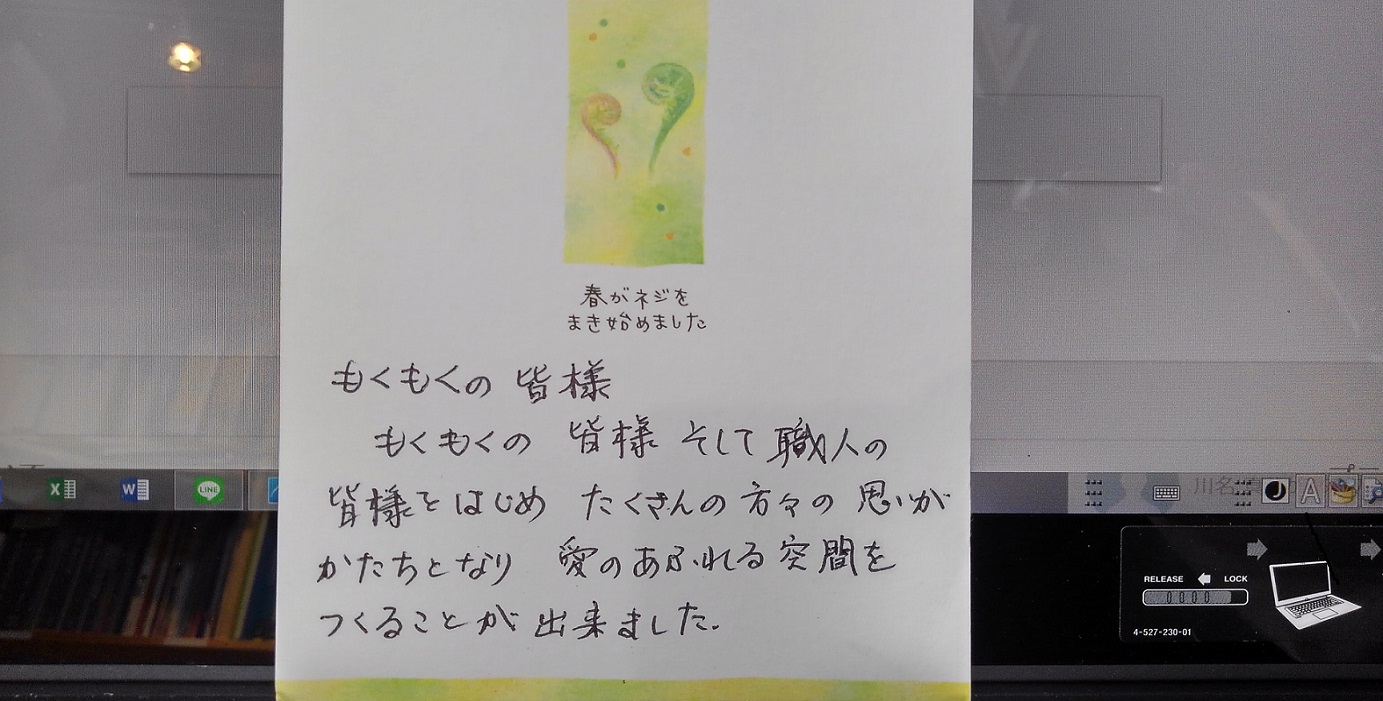 春がネジを
まき始めました
もくもくの 皆様
もくもくの 皆様 そして 職人の
皆様をはじめ たくさんの方々の 思いが
かたちとなり 愛のあふれる空間を
つくることが 出来ました.
LINE
RELEASE LOCK
4-527-230-01